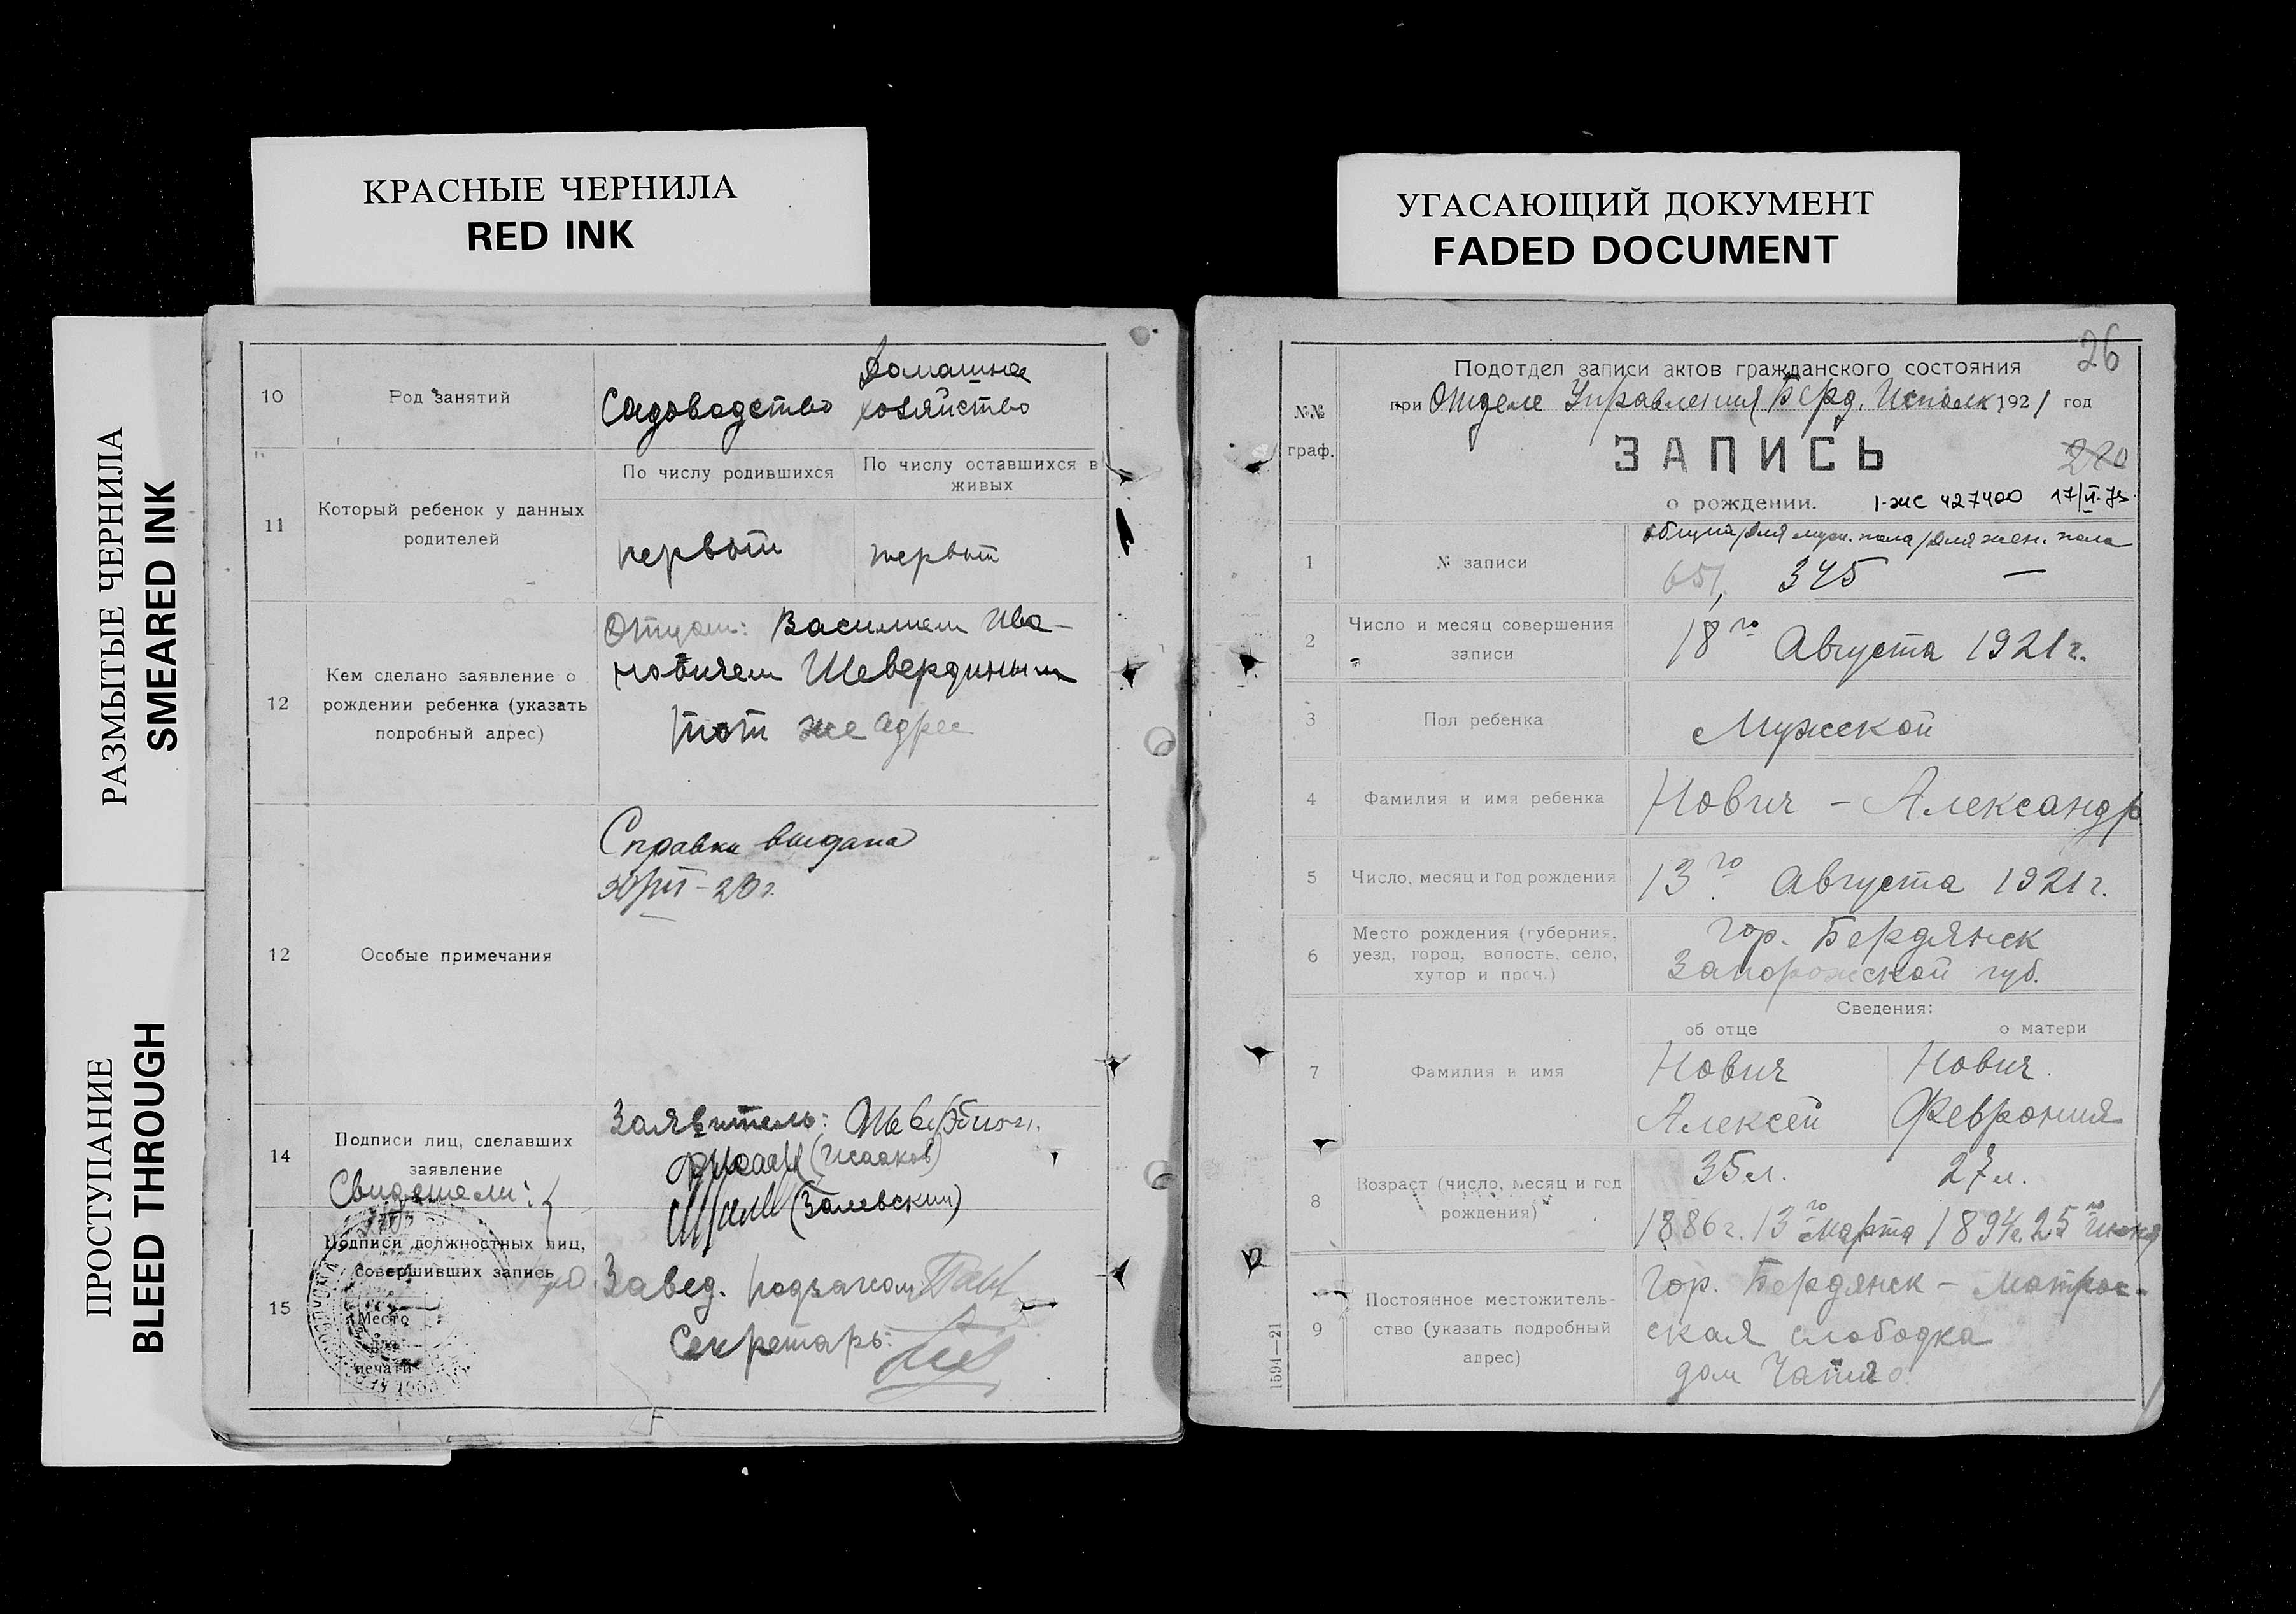 КРАСНЫЕ ЧЕРНИЛА
RED INK
УГАСАЮЩИЙ ДОКУМЕНТ
FADED DOCUMENT
РАЗМЫТЫЕ ЧЕРНИЛА
SMEARED INK
ПРОСТУПАНИЕ
BLEED THROUGH
10
Род занятий
Садоводство
Домашнее
хозяйство
11
Который ребенок у данных
родителей
По числу родившихся
По числу оставшихся в
живых
первый
первый
12
Кем сделано заявление о
рождении ребенка (указать
подробный адрес)
Отцом: Василием Ива-
новичем Шевердиным
тот же адрес
12
Особые примечания
Справка выдана
14
Подписи лиц, сделавших
заявление
Свидетели:
Заявитель:
(Исааков)
(Залевский)
15
Подписи должностных лиц,
совершивших запись
Место
для
печати
Завед. подзагсом
Секретарь:
26
Подотдел записи актов гражданского состояния
при Отделе Управления Берд. Исполк. 1921 год
№№
граф.
ЗАПИСЬ
220
о рождении.
I-жс 427400 17/VI-73
1
№ записи
общий/для муж. пола/для жен. пола
651, 345 —
2
Число и месяц совершения
записи
18го Августа 1921 г.
3
Пол ребенка
Мужской
4
Фамилия и имя ребенка
Нович - Александр
5
Число, месяц и год рождения
13го Августа 1921 г.
6
Место рождения (губерния,
уезд, город, волость, село,
хутор и проч.)
гор. Бердянск
Запорожской губ.
Сведения:
об отце
о матери
7
Фамилия и имя
Нович
Алексей
Нович
Феврония
8
Возраст (число, месяц и год
рождения)
35 л.
27 л.
1886 г. 13го Марта
1894 г. 25го Июня
9
Постоянное местожитель-
ство (указать подробный
адрес)
Гор. Бердянск - Матрос-
ская слободка
дом
1594—21